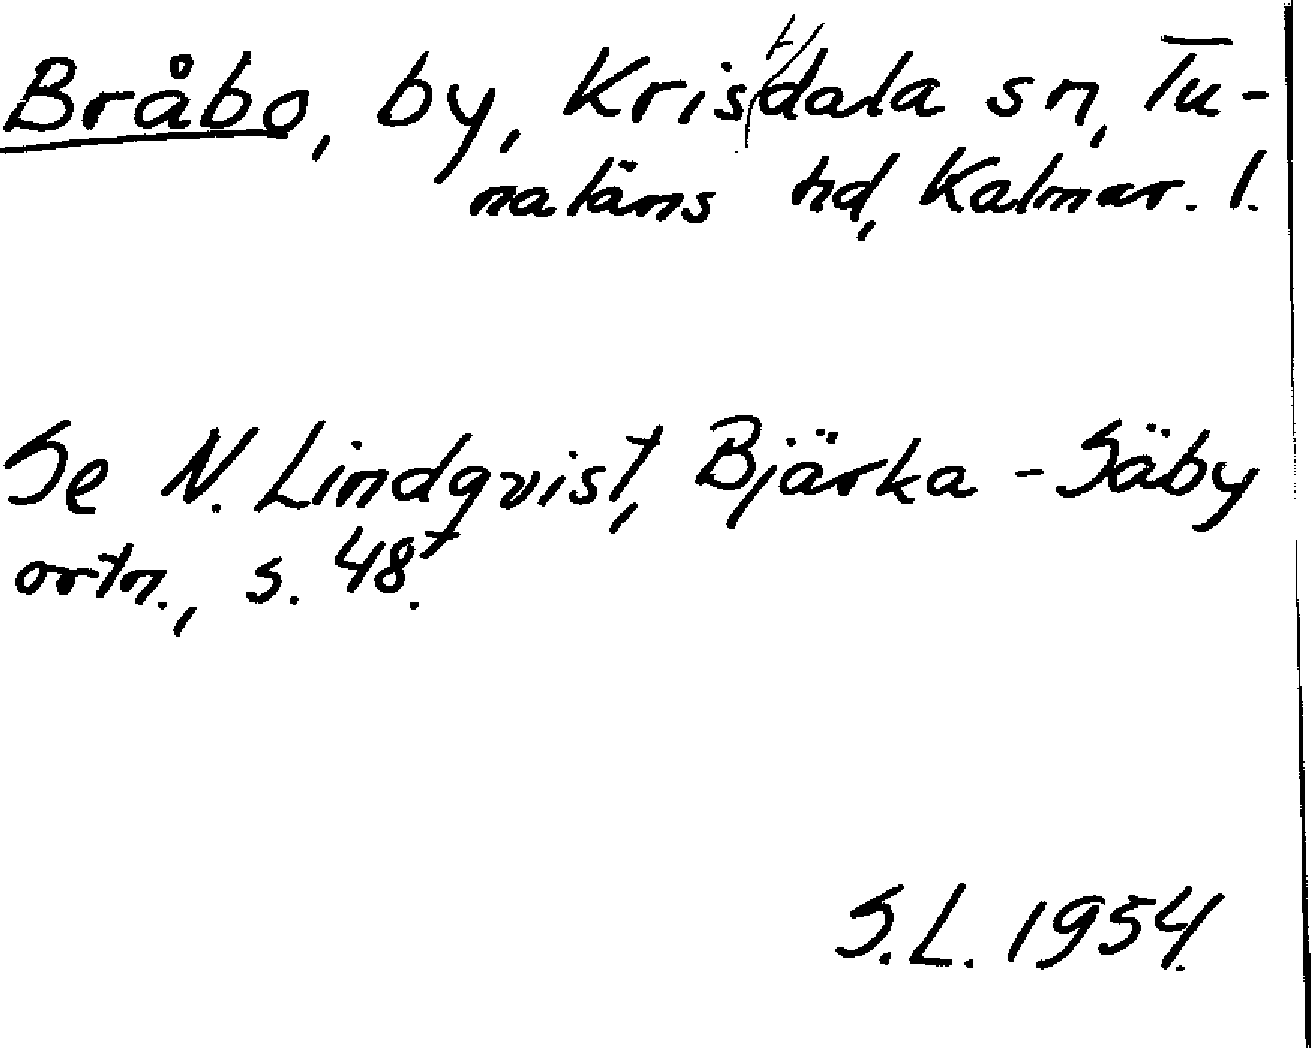 Bråbo, by, Kristdala sn, Tu-
naläns hd, Kalmar. l.
Se N. Lindqvist, Bjärka-Säby
ortn., s. 48.
S.L. 1954.